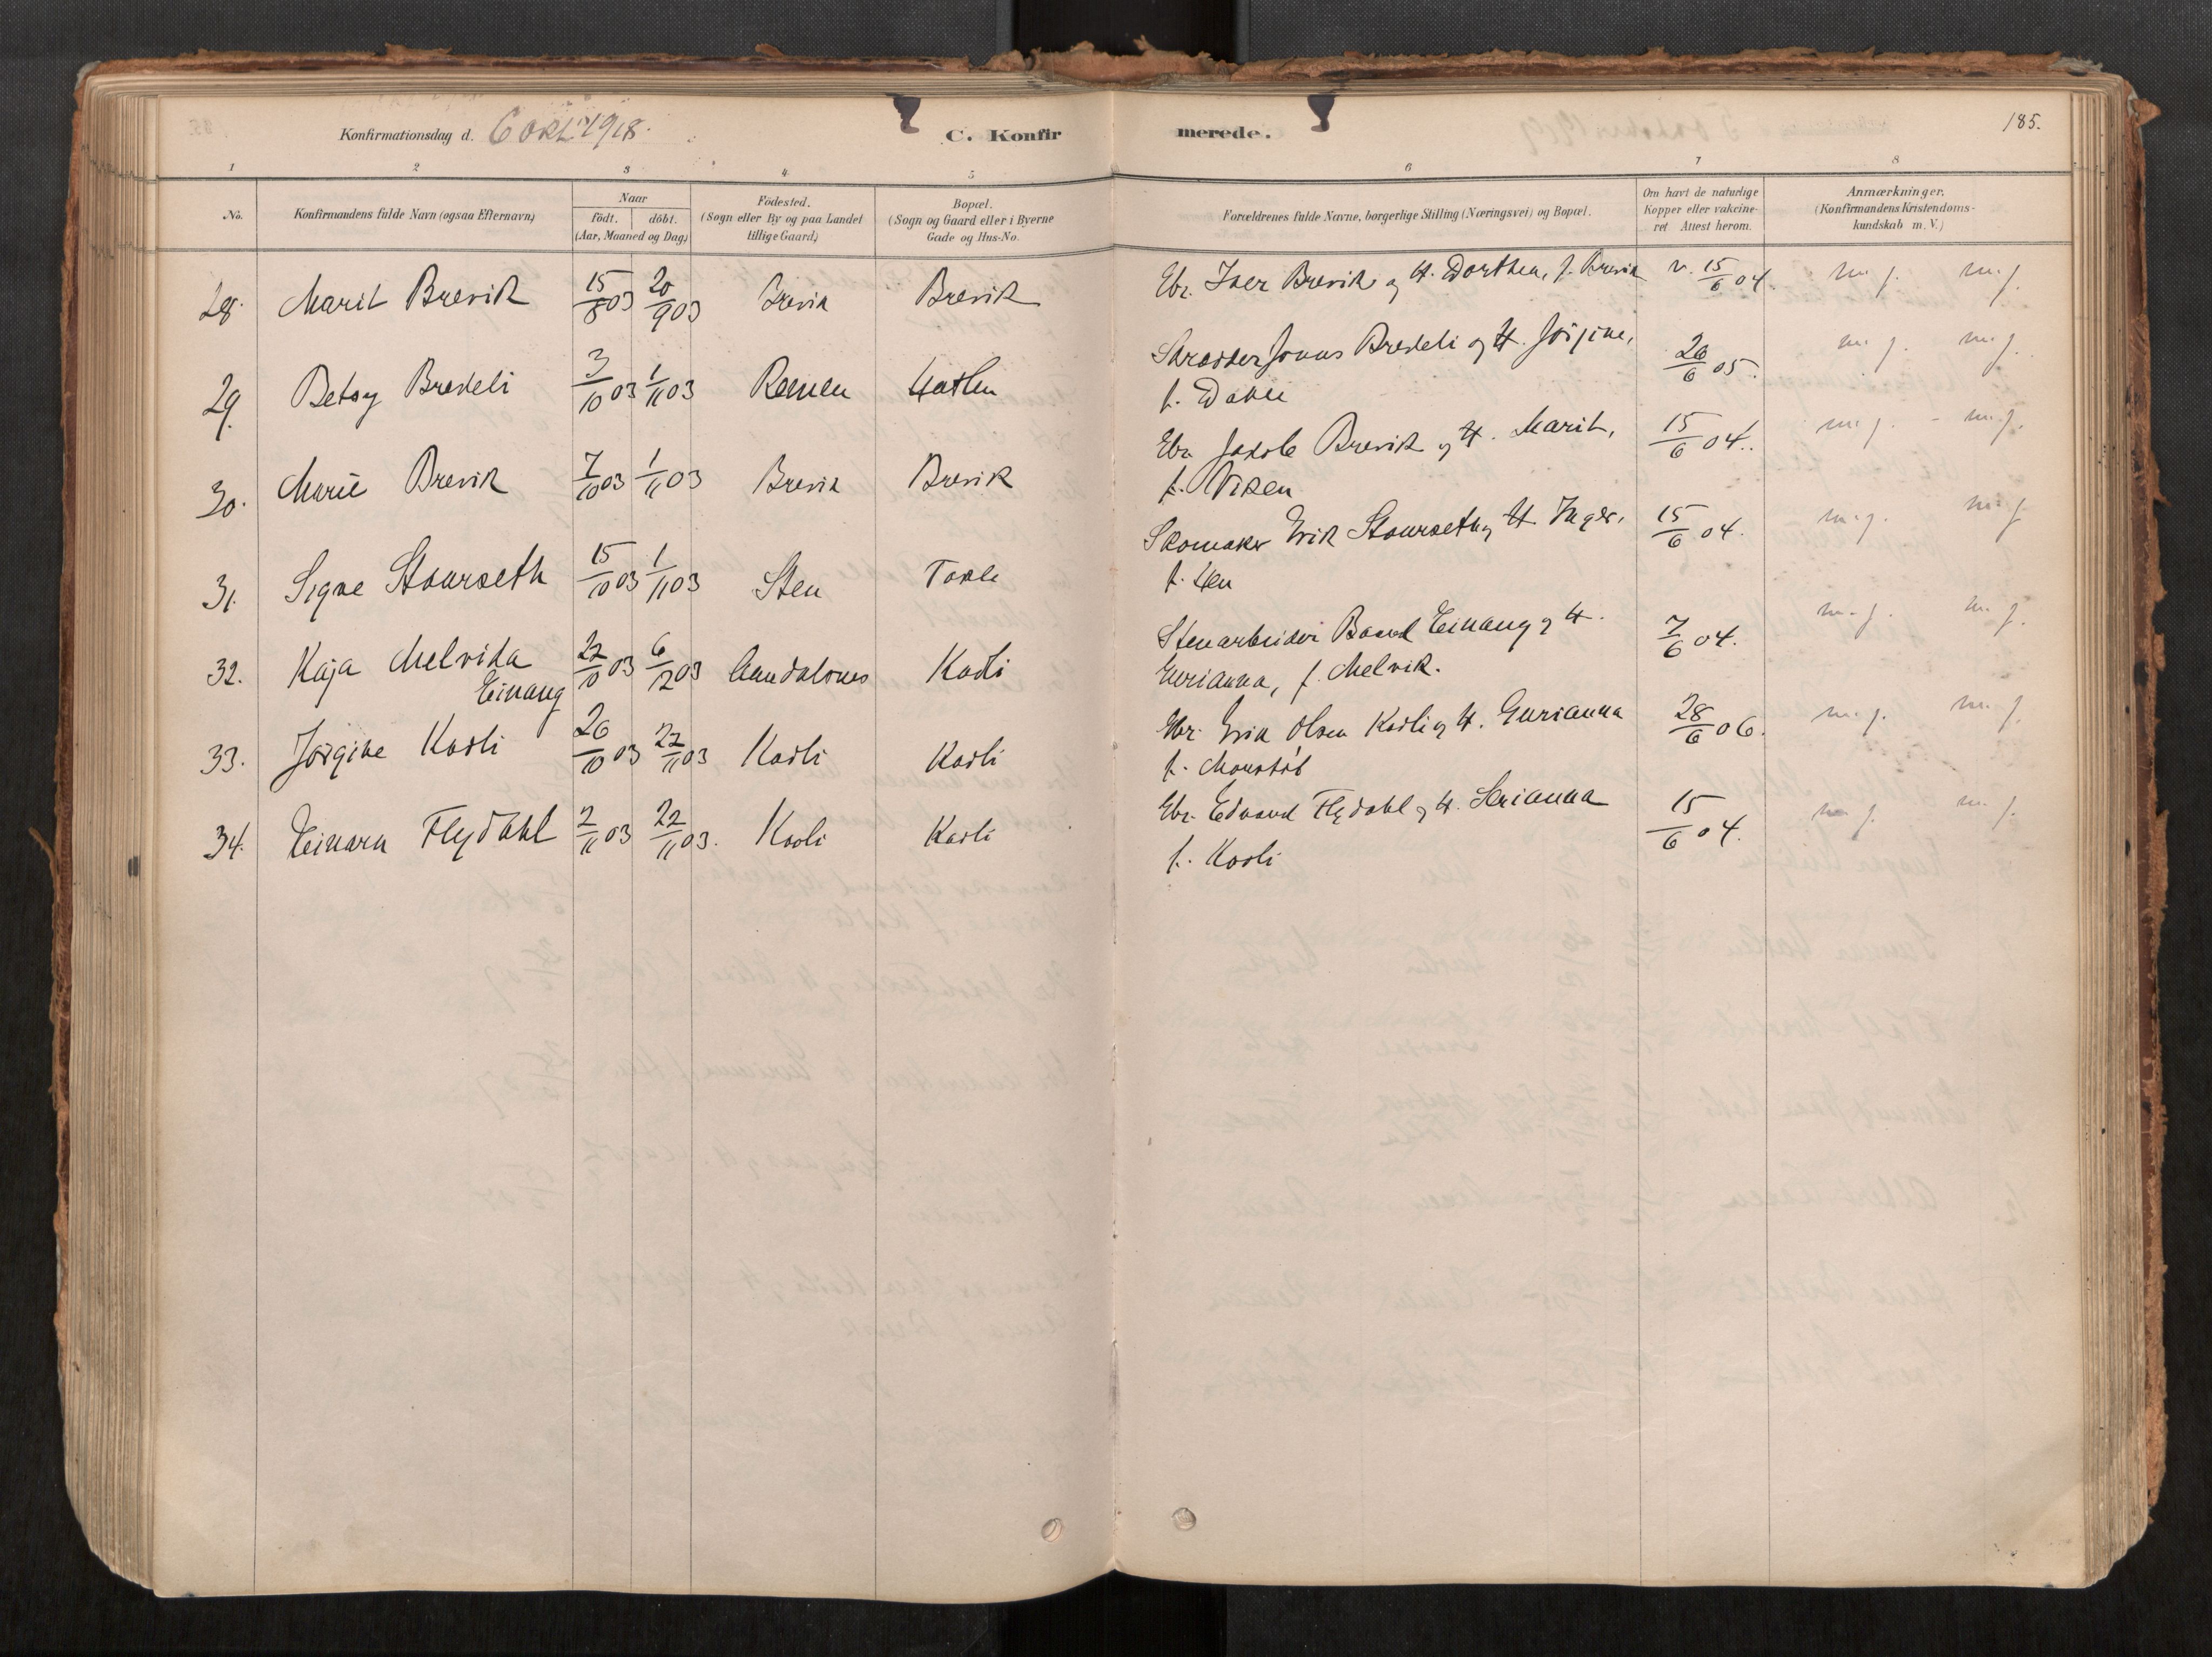 Konfirmationsdag d. 6 okt. 1918. C. Konfirmerede. 185.
1 2 3 4 5 6 7 8
No. Konfirmandens fulde Navn (ogsaa Efternavn) Naar födt. döbt. (Aar, Maaned og Dag.) Födested. (Sogn eller By og paa Landet tillige Gaard.) Bopæl. (Sogn og Gaard eller i Byerne Gade og Hus-No. Forældrenes fulde Navne, borgerlige Stilling (Næringsvei) og Bopæl. Om havt de naturlige Kopper eller vakcineret Attest herom. Anmærkninger. (Konfirmandens Kristendomskundskab m. V.)
28. Marit Brevik 15/8 03 20/9 03 Brevik Brevik Gbr. Iver Brevik og H. Dorthea, f. Brevik v. 15/6 04. m. g. m. g.
29. Betsy Bredeli 3/10 03 1/11 03 Remen Hatlen Skrædder Jonas Bredeli og H. Jörgine, 26/6 05. m. g. m. g.
f. Dahle
30. Marie Brevik 7/10 03 1/11 03 Brevik Brevik Gbr. Jakob Brevik og H. Marit, 15/6 04. m. g. - m. g.
f. Viken
31. Signe Stourseth 15/10 03 1/11 03 Sten Tokle Skomaker Erik Stourseth og H. Inger, 15/6 04. m. g. m. g.
f. Hen
32. Kaja Melvida 22/10 03 6/12 03 Aandalsnes Kavli Stenarbeider Baard Einang og H. 7/6 04. m. g. m. g.
Einang Gurianna, f. Melvik.
33. Jörgine Kavli 26/10 03 22/11 03 Kavli Kavli Gbr. Erik Olsen Kavli og H. Gurianna 28/6 06. m. g. m. g.
34. Einara Flydahl 2/11 03 22/11 03. Kavli Kavli Gbr. Edvard Flydahl og H. Serianna 15/6 04. m. g. m. g.
f. Kavli